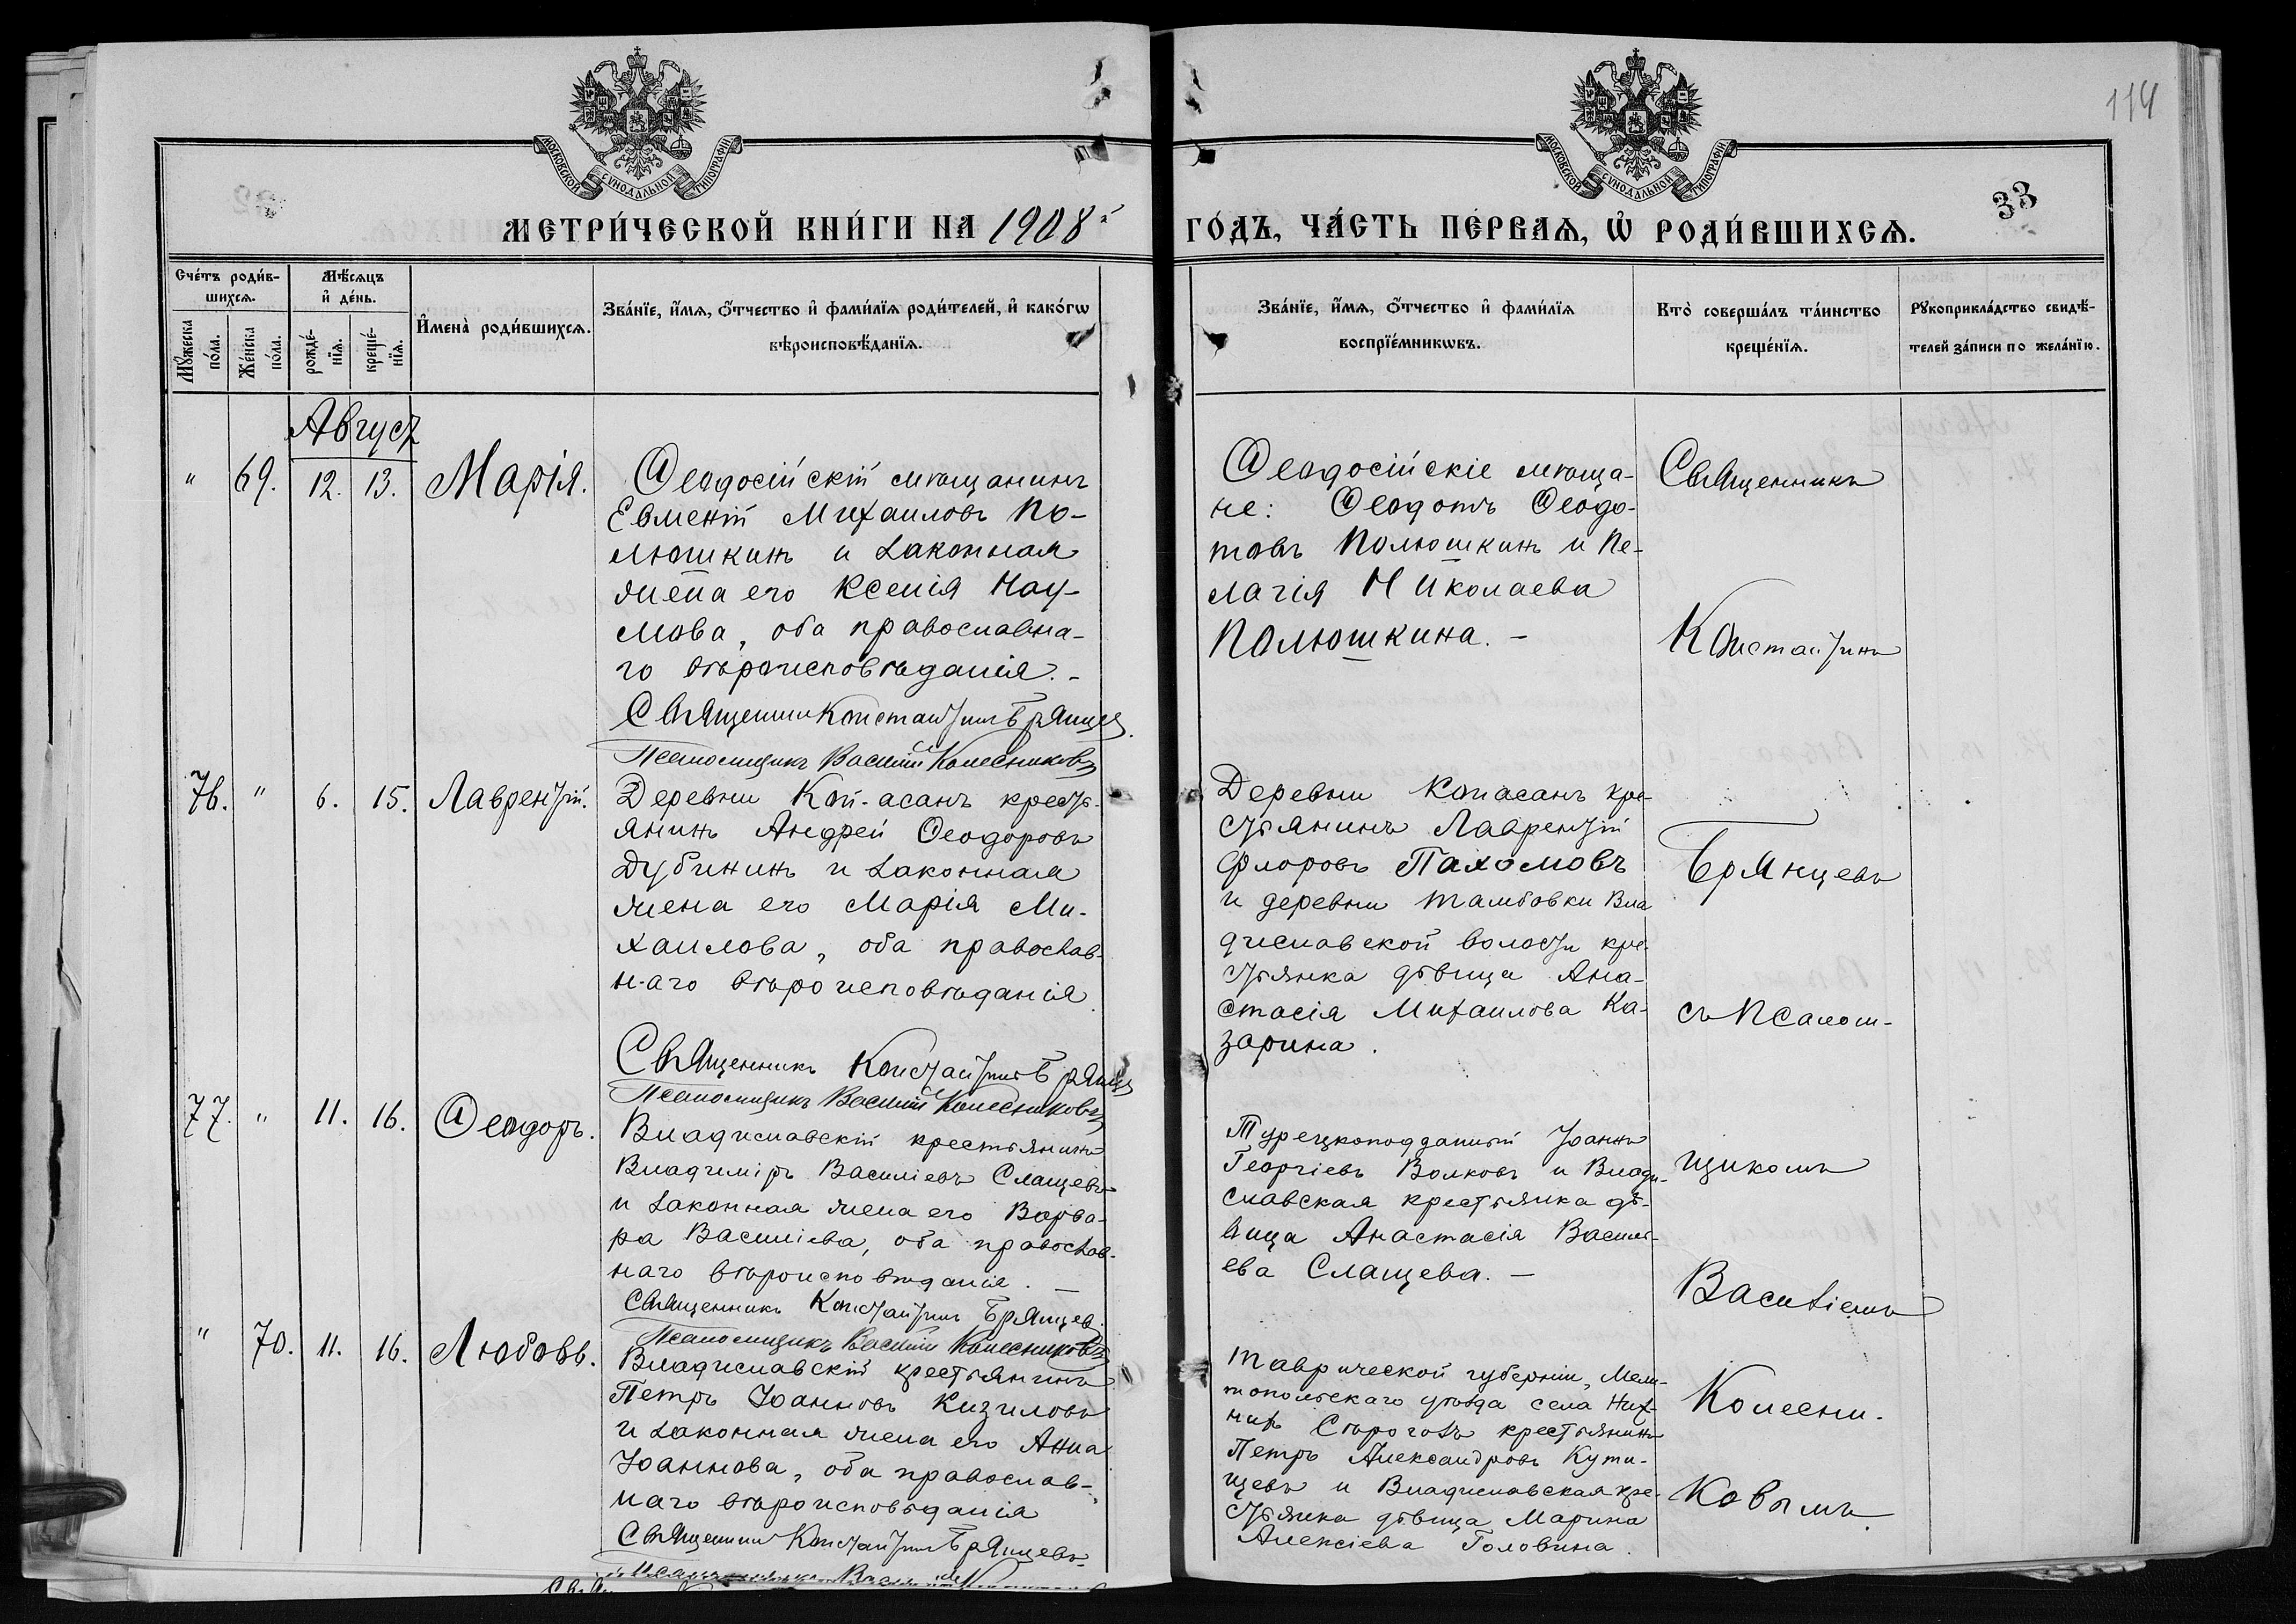 114
33
МОСКОВСКОЙ СѴНОДАЛЬНОЙ ТИПОГРАФІИ
МОСКОВСКОЙ СѴНОДАЛЬНОЙ ТИПОГРАФІИ
МЕТРИ́ЧЕСКОЙ КНИ́ГИ НА 1908й
ГО́ДЪ, ЧА́СТЬ ПЕ́РВАѦ, Ѡ҆ РОДИ́ВШИХСѦ.
Сче́тъ роди́в-
шихсѧ.
Мꙋжеска по́ла.
Же́нска по́ла.
Мѣ́сѧцъ
и҆ де́нь.
рожде́-
нїѧ.
креще́-
нїѧ.
И҆мена̀ роди́вшихсѧ.
Зва́нїе, и҆́мѧ, ѻ҆́тчество и҆ фами́лїѧ роди́телей, и҆ како́гѡ
вѣроисповѣ́данїѧ.
Зва́нїе, и҆́мѧ, ѻ҆́тчество и҆ фами́лїѧ
воспрїе́мникѡвъ.
Кто̀ соверша́лъ та́инство
креще́нїѧ.
Рꙋкоприкла́дство свидѣ́-
телей за́писи по жела́нїю.
Август
" 69. 12. 13. Марія.
Ѳеодосійскій мѣщанинъ
Евменій Михаиловъ По-
люшкинъ и законная
жена его Ксенія Нау-
мова, оба православна-
го вѣроисповѣданія. -
Священник Константин Брянцев.
Псаломщикъ Василій Колесниковъ
Ѳеодосійскіе мѣща-
не: Ѳеодотъ Ѳеодо-
товъ Полюшкинъ и Пе-
лагія Николаева
Полюшкина. -
76. " 6. 15. Лаврентій.
Деревни Коп-асанъ кресть-
янинъ Андрей Ѳеодоровъ
Дубининъ и законная
жена его Марія Ми-
хаилова, оба православ-
наго вѣроисповѣданія.
Священникъ Константин Брянцев
Псаломщикъ Василій Колесниковъ
Деревни Копасанъ кре-
стьянинъ Лаврентій
Флоровъ Пахомовъ
и деревни Тамбовки Вла
диславской волости кре-
стьянка дѣвица Ана-
стасія Михаилова Ка-
зарина.
77. " 11. 16. Ѳеодоръ.
Владиславскій крестьянинъ
Владиміръ Василіевъ Слащевъ
и законная жена его Варва-
ра Василіева, оба православ-
наго вѣроисповѣданія. -
Священникъ Константин Брянцев.
Псаломщикъ Василій Колесниковъ
Турецкоподданный Іоаннъ
Георгіевъ Волковъ и Влади-
славская крестьянка дѣ-
вица Анастасія Василі-
ева Слащева. -
" 70. 11. 16. Любовь.
Владиславскій крестьянинъ
Петръ Іоанновъ Кизиловъ
и законная жена его Анна
Іоаннова, оба православ-
наго вѣроисповѣданія
Священник Константин Брянцевъ
Таврической губерніи, Мели-
топольскаго уѣзда села Ниж-
нихъ Сѣрогозъ крестьянинъ
Петръ Александровъ Кути-
щевъ и Владиславская кре-
стьянка дѣвица Марина
Алексіева Головина.
Священникъ
Константинъ
Брянцевъ
съ псалом-
щикомъ
Василіемъ
Колесни-
ковымъ.